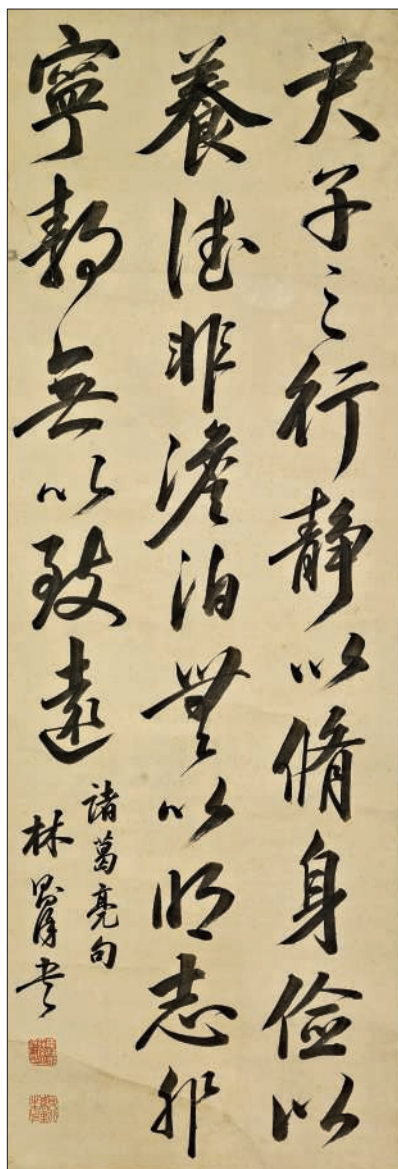 君子之行静以脩身儉以
養德非澹泊無以明志非
寧靜無以致遠
諸葛亮句
林書